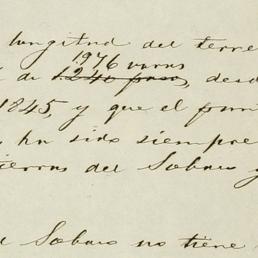 longitud del terre
1.976 varas
de 1.240 pasos, desd
1845, y que el prim
ha sido siempre
tierras del Sobaco y
Sobaco no tiene